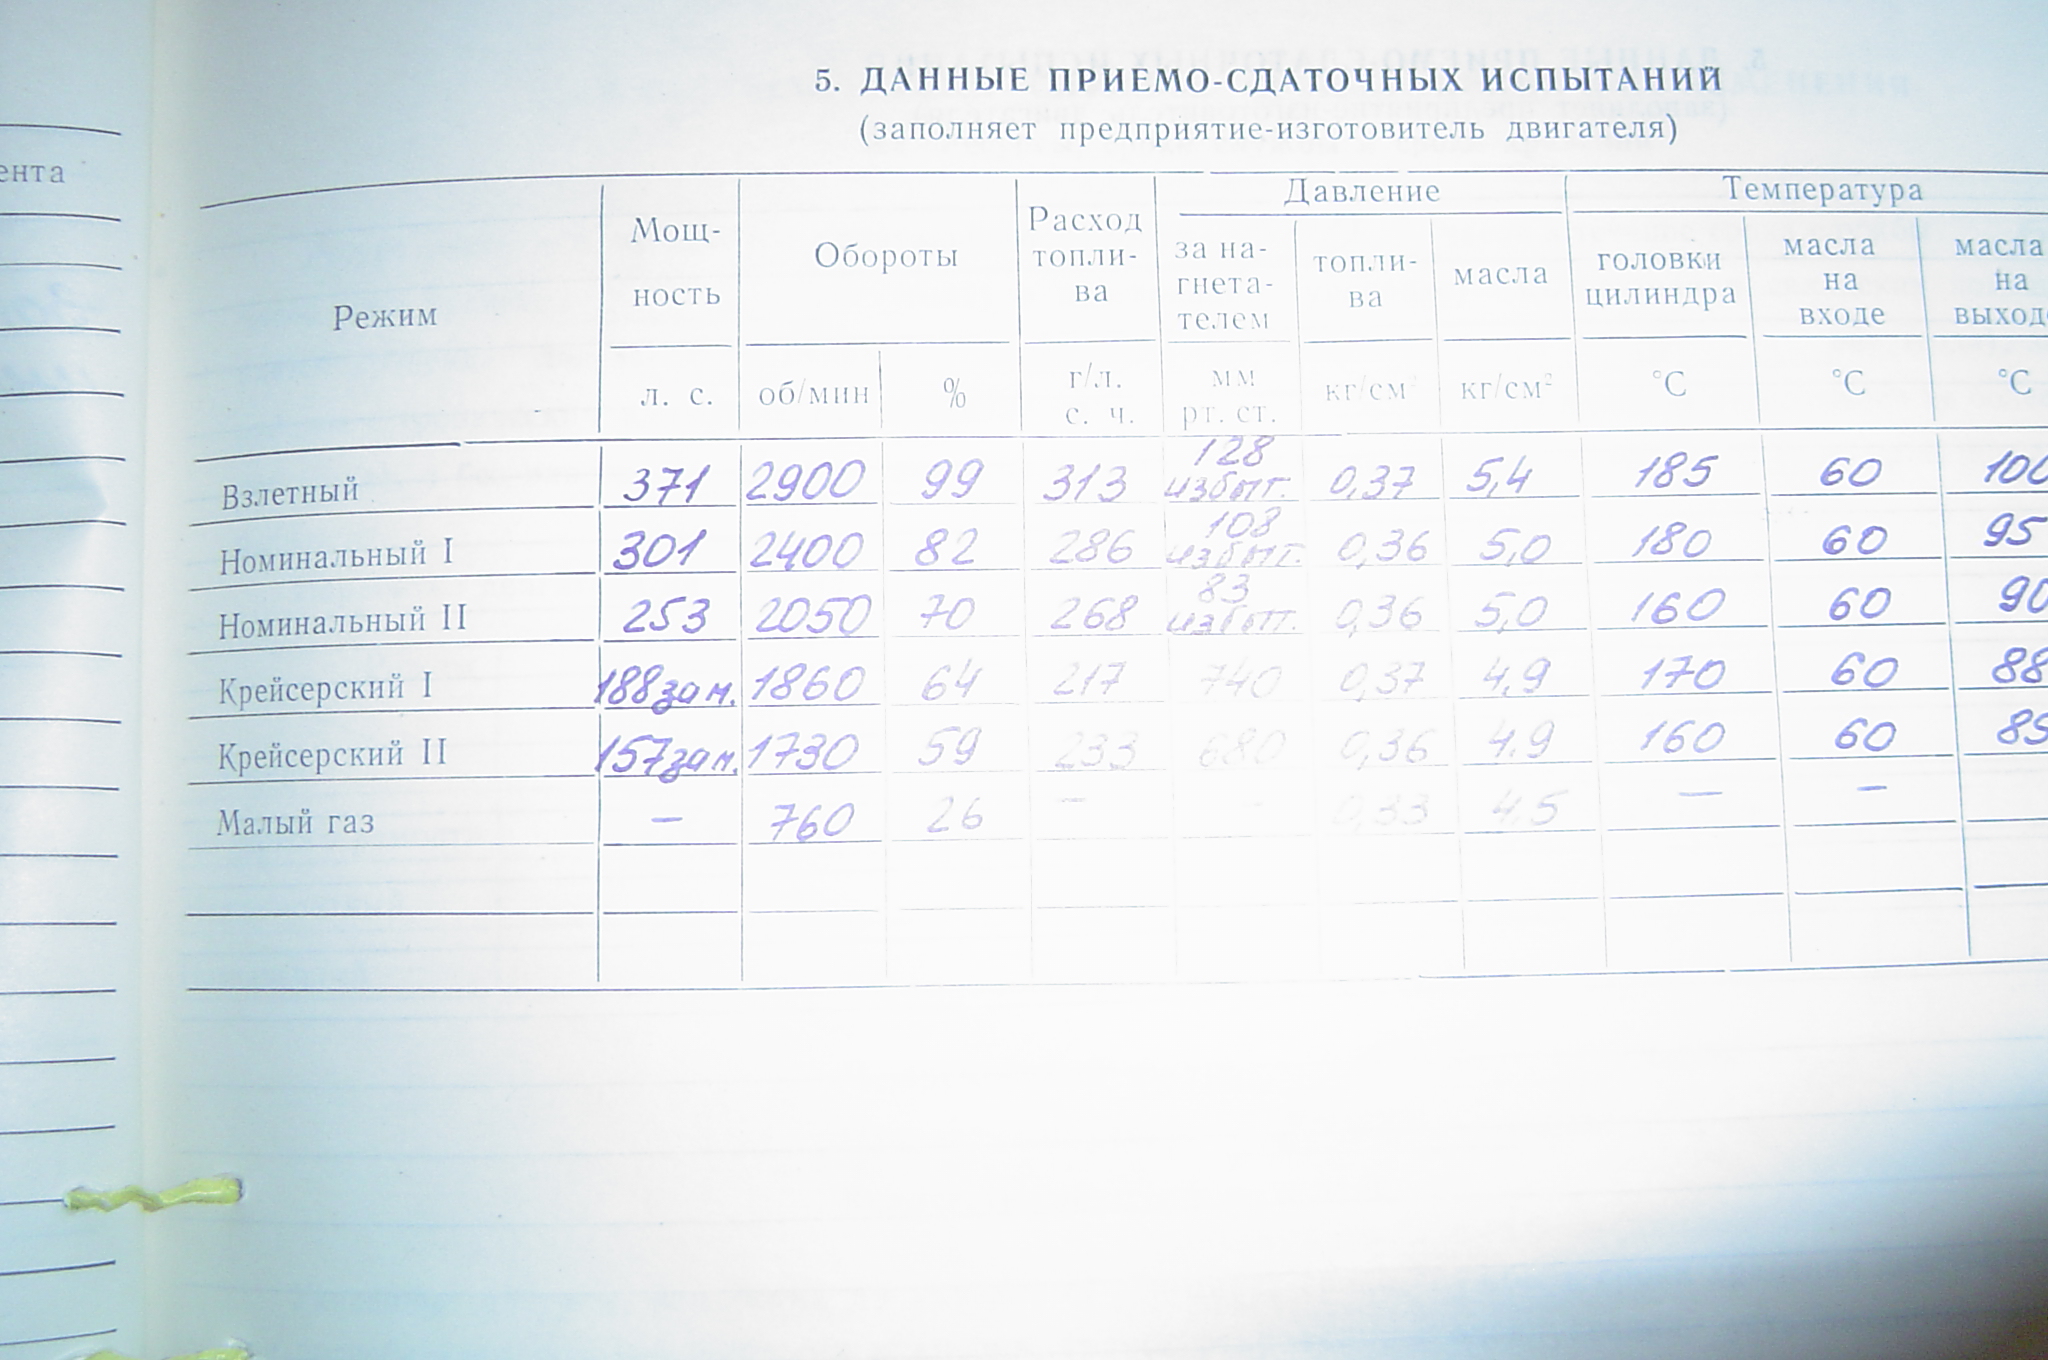 5. ДАННЫЕ ПРИЕМО-СДАТОЧНЫХ ИСПЫТАНИЙ
(заполняет предприятие-изготовитель двигателя)
ента
Режим
Мощ-
ность
л. с.
Обороты
об/мин %
Расход
топли-
ва
г/л.
с. ч.
Давление
за на-
гнета-
телем
мм
рт. ст.
топли-
ва
кг/см²
масла
кг/см²
Температура
головки
цилиндра
°С
масла
на
входе
°С
масла
на
выход
°С
Взлетный 371 2900 99 313 128 избыт. 0,37 5,4 185 60 100
Номинальный I 301 2400 82 286 108 избыт. 0,36 5,0 180 60 95
Номинальный II 253 2050 70 268 83 избыт. 0,36 5,0 160 60 90
Крейсерский I 188зам. 1860 64 217 740 0,37 4,9 170 60 88
Крейсерский II 157зам. 1730 59 233 680 0,36 4.9 160 60 85
Малый газ — 760 26 — - 0,33 4.5 — —